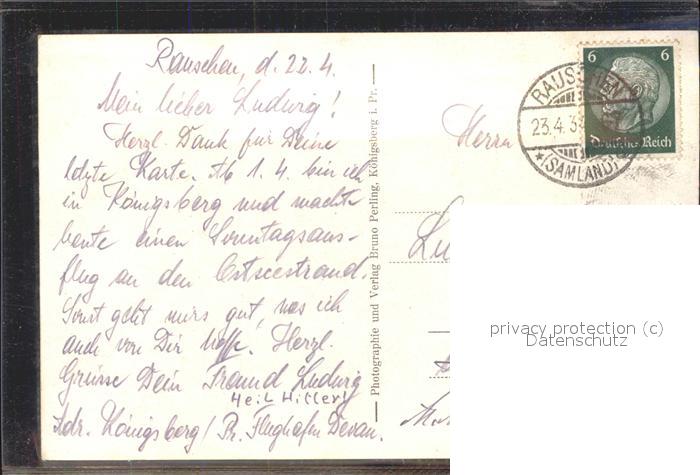 Rauschen, d. 22. 4.
Mein lieber Ludwig!
Herzl. Dank für Deine
letzte Karte. Ab 1. 4. bin ich
in Königsberg und machte
heute einen Sonntagsaus-
flug an den Ostseestrand.
Sonst geht mirs gut, was ich
auch von Dir hoffe. Herzl.
Grüsse Dein Freund Ludwig
Heil Hitler!
Adr. Königsberg/Pr. Flughafen Devau.
Photographie und Verlag Bruno Perling, Königsberg i. Pr.
Herrn
6 6
Deutsches Reich
RAUSCHEN
23.4.3
(SAMLAND)
privacy protection (c)
Datenschutz